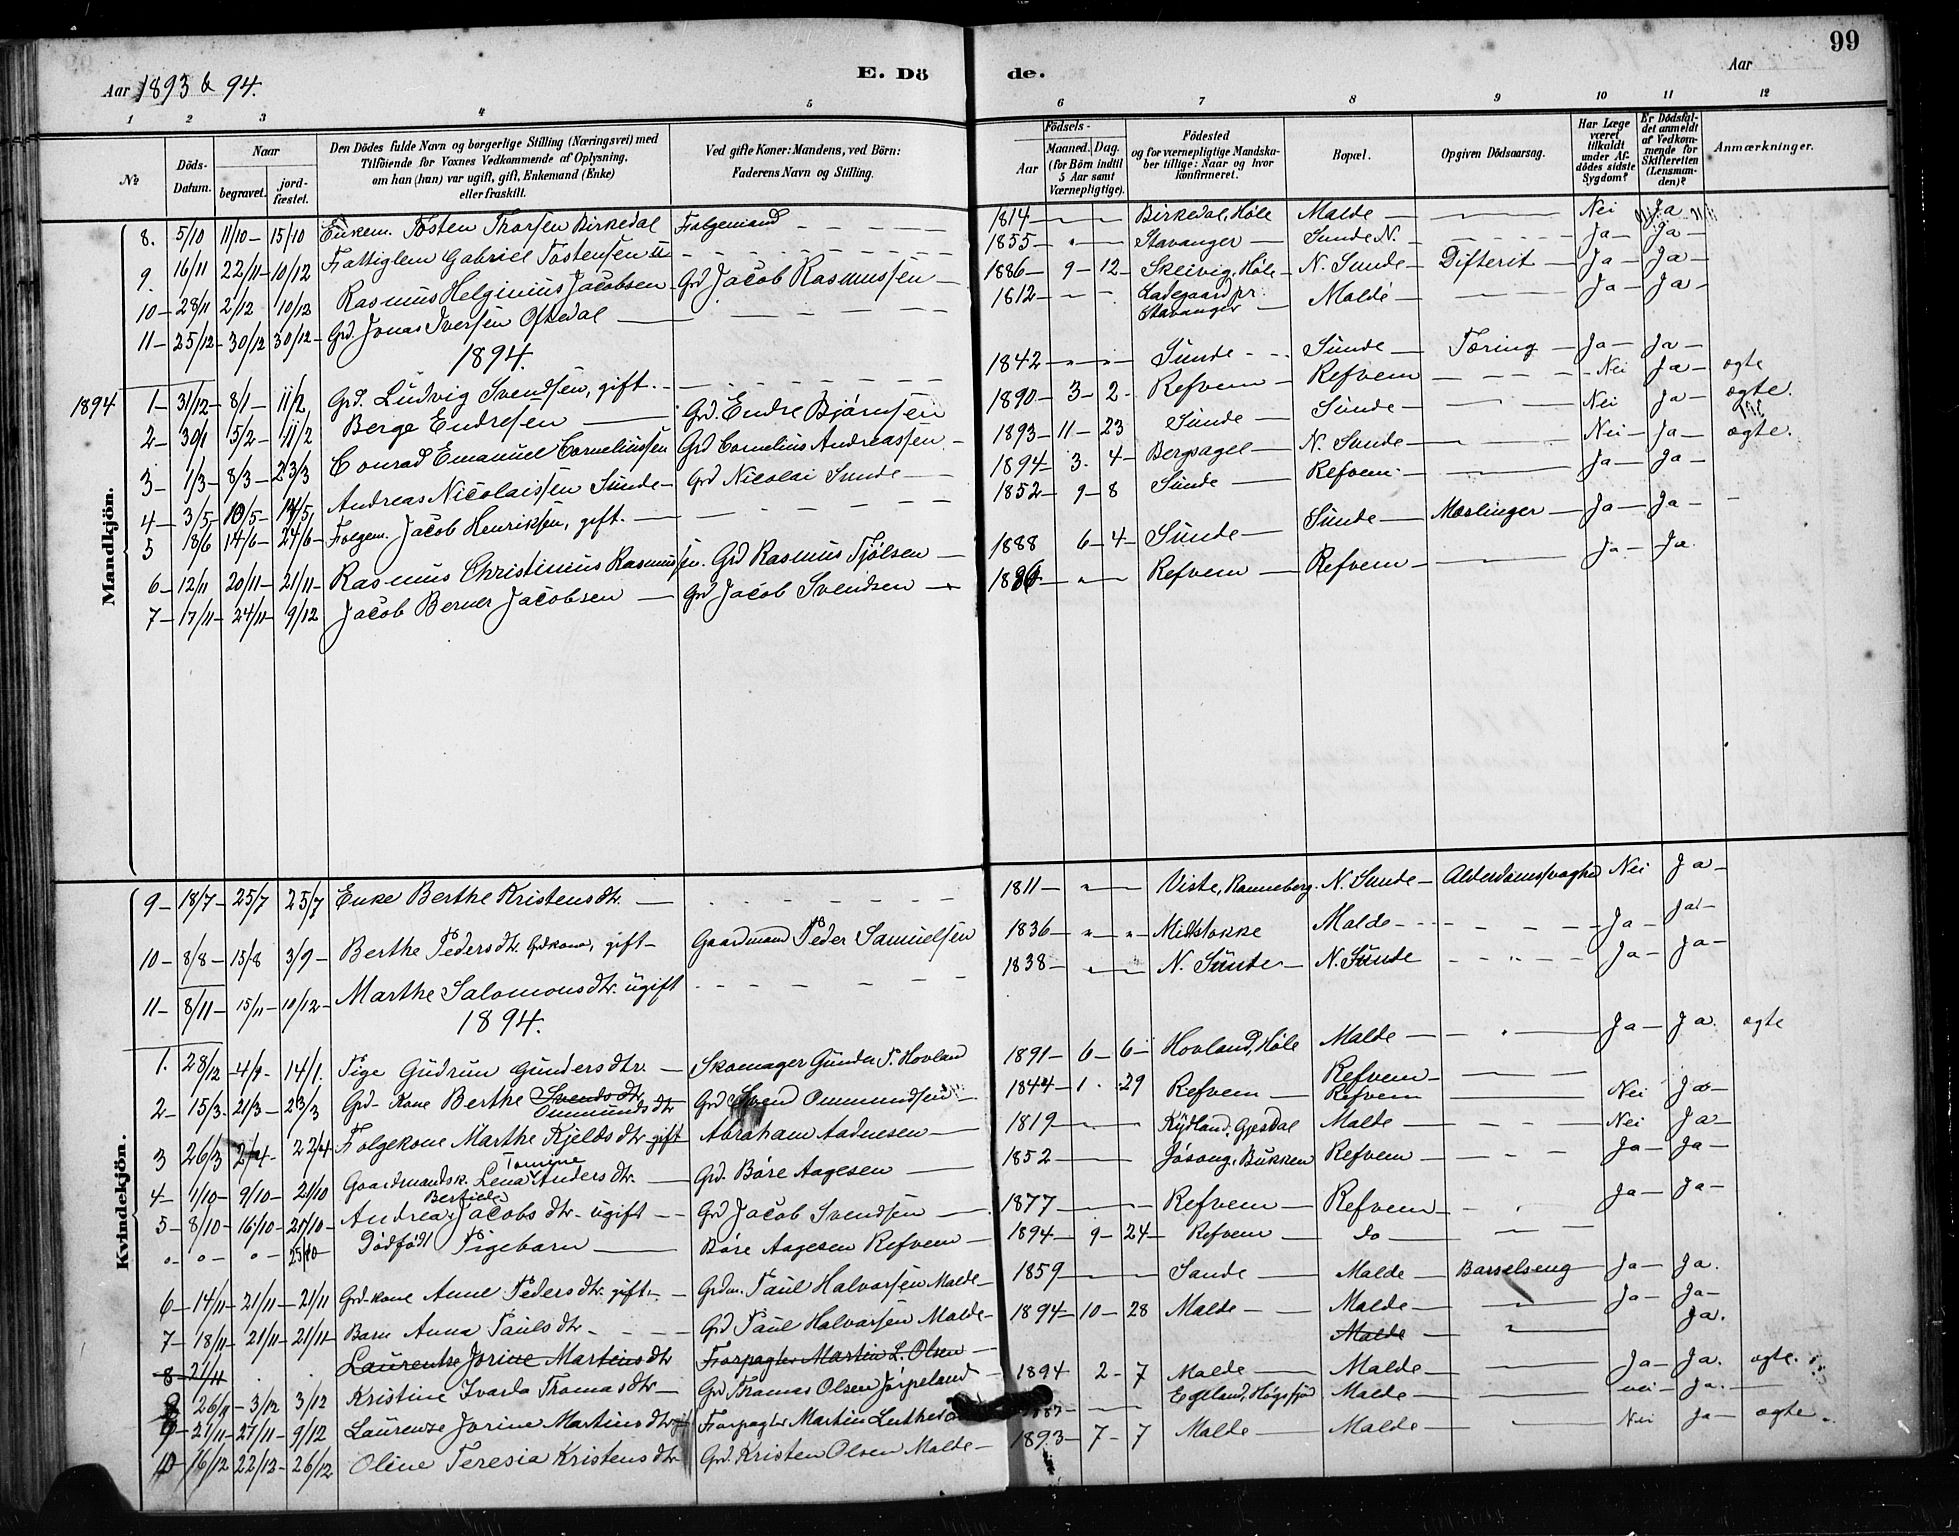 99
Aar 1893 & 94.
E. Dö de.
Aar
1 2 3 4 5 6 7 8 9 10 11 12
№ Döds-Datum. Naar begravet. jordfæstet. Den Dödes fulde Navn og borgerlige Stilling (Næringsvei) med Tilföiende for Voxnes Vedkommende af Oplysning, om han (hun) var ugift, gift, Enkemand (Enke) eller fraskilt. Ved gifte Koner: Mandens, ved Börn: Faderens Navn og Stilling. Födsels- Aar Maaned. Dag. (for Börn indtil 5 Aar samt Værnepligtige). Födested og for værnepligtige Mandskaber tillige: Naar og hvor konfirmeret. Bopæl. Opgiven Dödsaarsag. Har Læge været tilkaldt under Afdödes sidste Sygdom? Er Dödsfaldet anmeldt af Vedkommende for Skifteretten (Lensmanden)? Anmærkninger.
Mandkjön.
8. 5/10 11/10 – 15/10 Enkem. Tosten Thorsen Birkedal Folgemand 1814 Birkedal, Høle Malde Nei Ja
9. 16/11 22/11 – 10/12 Fattiglem Gabriel Tostensen 1855 Stavanger Sunde N. Ja – Ja
10 – 28/11 2/12 10/12 Rasmus Helginius Jacobsen Grd Jacob Rasmussen 1886 – 9 – 12 Skeivig, Høle N. Sunde Difterit Ja – Ja
11 – 25/12 – 30/12 30/12 Grd. Jonas Iversen Oftedal 1812 Ladegaard pr. Stavanger Malde Ja – Ja
1894.
1894 1 – 31/12 – 8/1 – 11/2 Grd. Ludvig Svendsen, gift. 1842 Sunde Sunde Tæring Ja – Ja
2 – 30/1 5/2 – 11/2 Berge Endresen Grd. Endre Bjørnsen 1890 – 3 – 2 Refvem Refvem Nei Ja ægte
3 – 1/3 – 8/3 – 23/3 Conrad Emanuel Corneliussen Grd Cornelius Andreassen 1893 – 11 – 23 Sunde Sunde Nei Ja ægte.
4 – 3/5 – 10/5 – 14/5 Andreas Nicolaissen Sunde Grd Nicolai Sunde 1894 – 3 – 4 Bergsagel N. Sunde Nei – Ja ægte.
5 18/6 14/6 – 24/6 Folgem. Jacob Henriksen, gift. 1852 – 9 – 8 Sunde Refvem Ja – Ja
6 – 12/11 20/11 – 21/11 Rasmus Christinius Rasmussen. Grd Rasmus Tjølsen 1888 6 – 4 Sunde Sunde Mæslinger Ja – Ja
7 – 17/11 – 24/11 – 9/12 Jacob Berner Jacobsen Grd Jacob Svendsen Refvem Refvem Ja – Ja
Kvindekjön.
9 – 18/7 – 25/7 25/7 Enke Berthe Kristensdtr. 1811 Viste, Ranneberg. N. Sunde Alderdomssvaghed Nei Ja
10 – 8/8 – 15/8 3/9 Berthe Pedersdtr. Grdkone, gift Gaardmand Peder Samuelsen 1836 Midstokke Malde Ja – Ja
11 – 8/11 – 15/11 – 10/12 Marthe Salomonsdtr. ugift 1838 N. Sunde N. Sunde Ja – Ja
1894.
1. 28/12 – 4/1 – 14/1 Pige Gudrun Gundersdtr. Skomager Gunder T. Hovland 1891 – 6 – 6 Hovland, Høle Malde Ja – Ja. ægte
2 – 15/3 21/3 – 23/3 Grd-Kone Berthe Svendsdtr Ommundsdtr Grd Svend Ommundsen 1844 – 1 29 Refvem Refvem Refvem Nei Ja
3 26/3 2/4 22/4 Folgekone Marthe Kjeldsdtr. gift Abraham Aadnesen 1819 Kydland, Gjesdal Malde Nei Ja
4 – 1/10 – 9/10 – 21/10 Gaardmandsk. Lena Tomine Andersdtr. Grd. Børe Aagesen 1852 Jøsang, Bukken Refvem Ja – Ja
5 – 8/10 – 16/10 – 21/10 Andrea Jacobsdtr. ugift Grd Jacob Svendsen 1877 Refvem Refvem Ja – Ja
25/10 Dødfødt Pigebarn Børe Aagesen Refvem 1894 – 9 – 24 Refvem do
6 – 14/11 – 21/11 – 21/11 Grd-kone Anne Pedersdtr. gift Grdm. Paul Halvorsen Malde 1859 Sande Malde Barselseng Ja – Ja.
7 – 18/11 – 21/11 – 21/11 Barn Anna Paulsdtr Grd Paul Halvorsen Malde 1894 – 10 – 28 Malde Malde Ja – Ja
8 – 21/11 Laurentse Jorine Martinsdtr Forpagter Martin L. Olsen Malde Ja.
8 26/11 – 3/12 3/12 Kristine Ivarda Thomasdtr Grd Thomas Olsen Jørpeland 1894 2 – 7 Malde Malde Ja – Ja. ægte.
9 – 21/11 – 27/11 – 9/12 Laurense Jorine Martinsdtr Forpagter Martin Luther Egeland, Høgsfjord Malde nei – Ja.
10 16/12 22/12 – 26/12 Oline Teresia Kristensdtr Grd. Kristen Olsen Malde 1893 – 7 – 7 Malde Malde Nei Ja ægte.